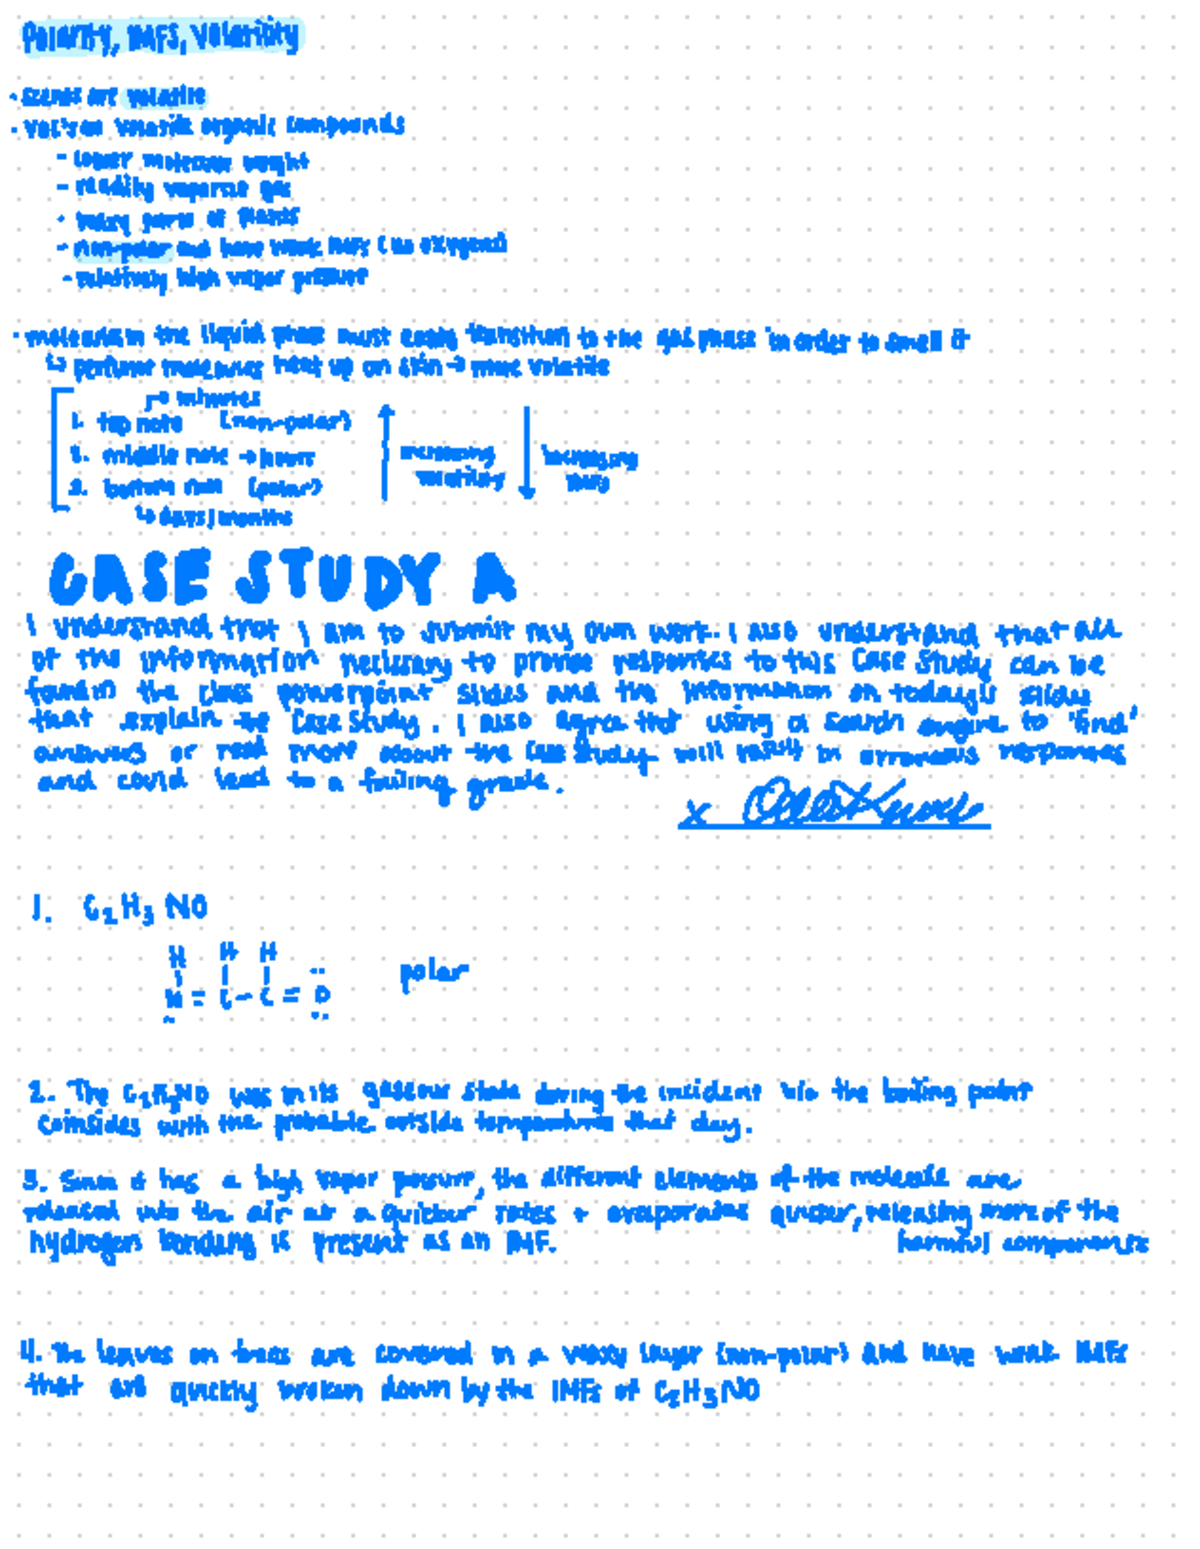 Polarity, IMFS, Volatility
- scents are volatile
- VOC's are volatile organic compounds
- lower molecular weight
- readily vaporize gas
- waxy parts of plants
- non-polar and have weak IMFs (no oxygens)
- relatively high vapor pressure
- molecules in the liquid phase must easily transition to the gas phase in order to smell it
↳ perfume molecules heat up on skin → more volatile
→ minutes
1. top note (non-polar)
2. middle note → hours
3. bottom note (polar)
↳ days/months
increasing volatility
increasing IMFs
CASE STUDY A
I understand that I am to submit my own work. I also understand that all
of the information necessary to provide responses to this Case Study can be
found in the class powerpoint slides and the information on today's slides
that explain the Case Study. I also agree that using a search engine to "find"
answers or read more about the Case Study will result in erroneous responses
and could lead to a failing grade.
x
1. C₂H₃NO
H H H
N = C - C = O
polar
2. The C₂H₃NO was in its gaseous state during the incident b/c the boiling point
coinsides with the probable outside temperatures that day.
3. Since it has a high vapor pressure, the different elements of the molecule are
released into the air at a quicker rates + evaporates quicker, releasing more of the
harmful components
hydrogen bonding is present as an IMF.
4. The leaves on trees are covered in a waxy layer (non-polar) and have weak IMFs
that are quickly broken down by the IMFs of C₂H₃NO